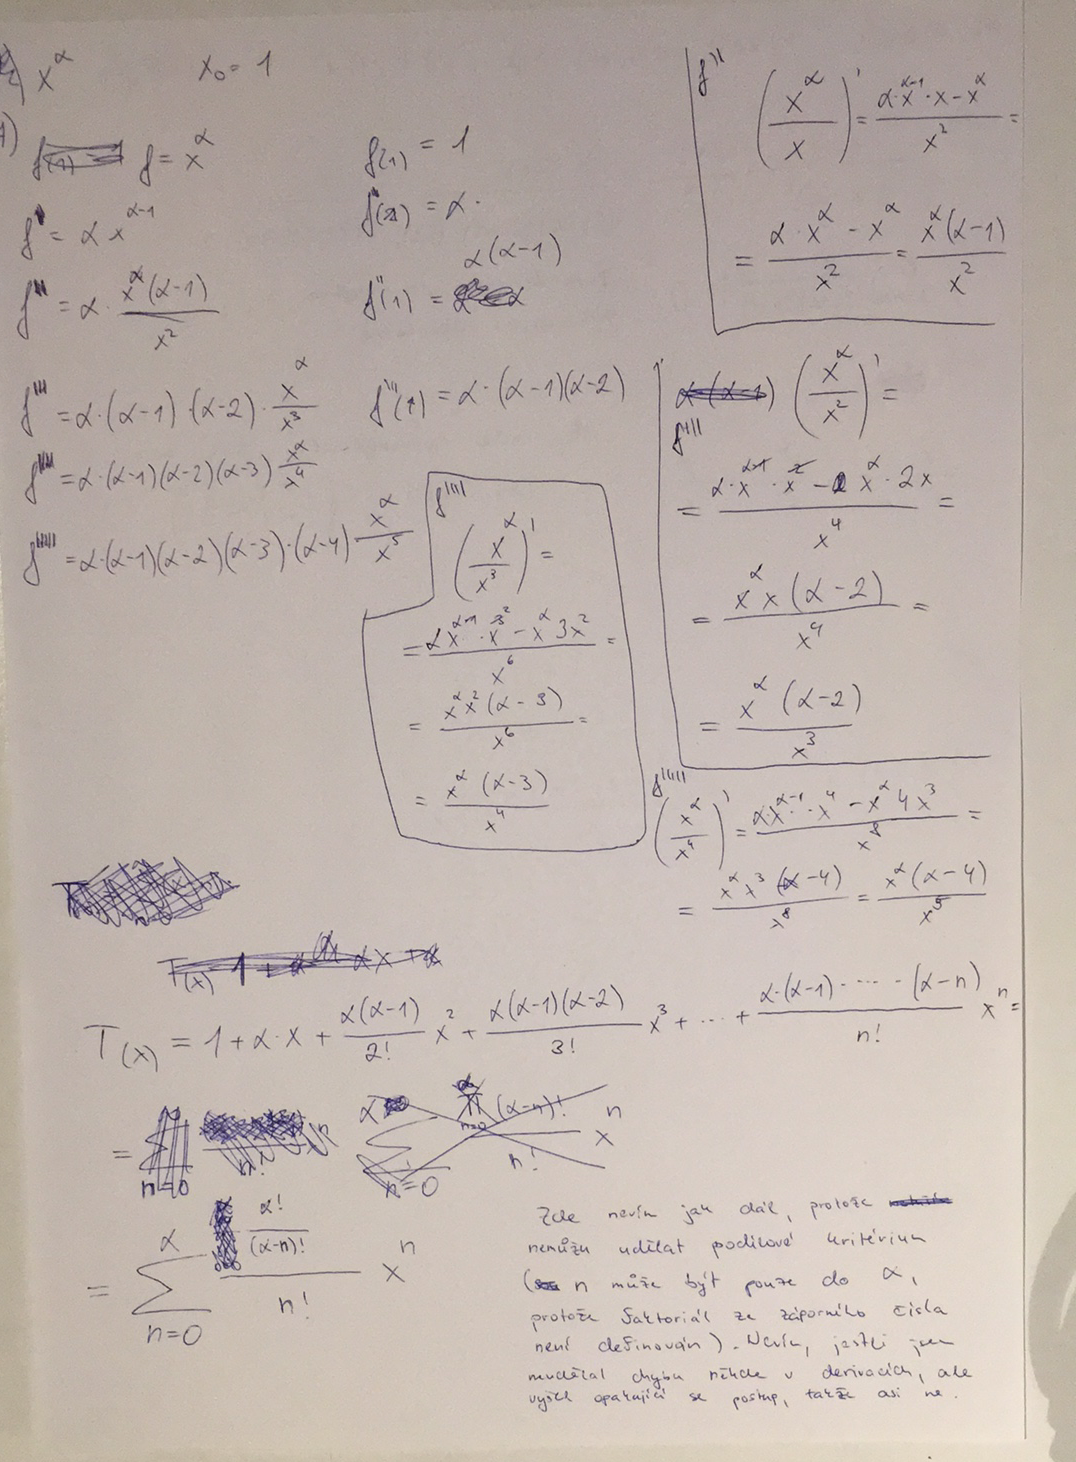 x^α x₀ = 1
f = x^α
f' = α x^(α-1)
f'' = α · x^α(α-1) / x²
f''' = α·(α-1)·(α-2) · x^α / x³
f'''' = α·(α-1)(α-2)(α-3) x^α / x⁴
f''''' = α·(α-1)(α-2)(α-3)·(α-4) x^α / x⁵
f(1) = 1
f'(1) = α·
α(α-1)
f''(1) =
f'''(1) = α·(α-1)(α-2)
f''
(x^α / x)' = (α·x^(α-1)·x - x^α) / x² =
= (α·x^α - x^α) / x² = x^α(α-1) / x²
(x^α / x²)' =
f'''
= (α·x^(α-1)·x² - x^α·2x) / x⁴ =
= x^α x (α-2) / x⁴ =
= x^α (α-2) / x³
f''''
(x^α / x³)' =
= (αx^(α-1)·x³ - x^α 3x²) / x⁶ =
= x^α x² (α-3) / x⁶ =
= x^α (α-3) / x⁴
f'''''
(x^α / x⁴)' = (αx^(α-1)·x⁴ - x^α 4x³) / x⁸ =
= x^α x³ (α-4) / x⁸ = x^α (α-4) / x⁵
T(x) = 1 + α·x + α(α-1)/2! x² + α(α-1)(α-2)/3! x³ + ... + α·(α-1)·...·(α-n)/n! x^n =
= Σ_(n=0)^α (α!/(α-n)!) / n! x^n
Zde nevím jak dál, protože
nemůžu udělat podílové kritérium
( n může být pouze do α,
protože faktoriál ze záporného čísla
není definován). Nevím, jestli jsem
neudělal chybu někde v derivacích, ale
vyšel opakující se postup, takže asi ne.